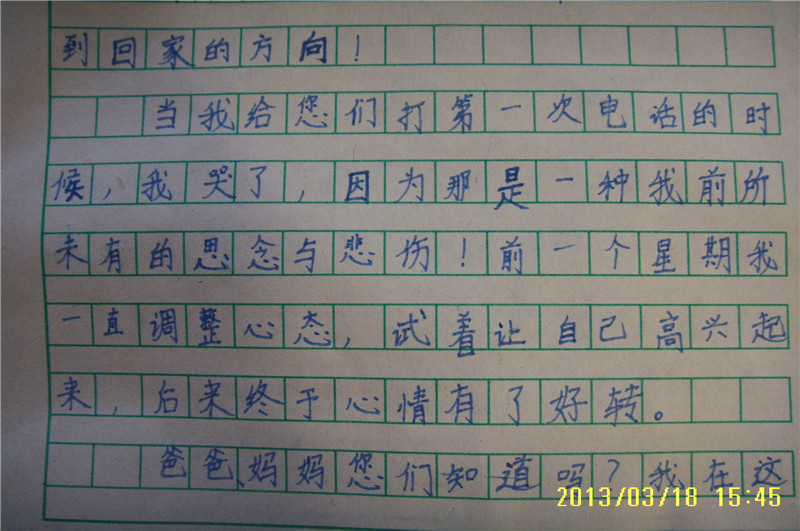 到回家的方向！
当我给您们打第一次电话的时
候，我哭了，因为那是一种我前所
未有的思念与悲伤！前一个星期我
一直调整心态，试着让自己高兴起
来，后来终于心情有了好转。
爸爸、妈妈您们知道吗？我在这
2013/03/18 15:45